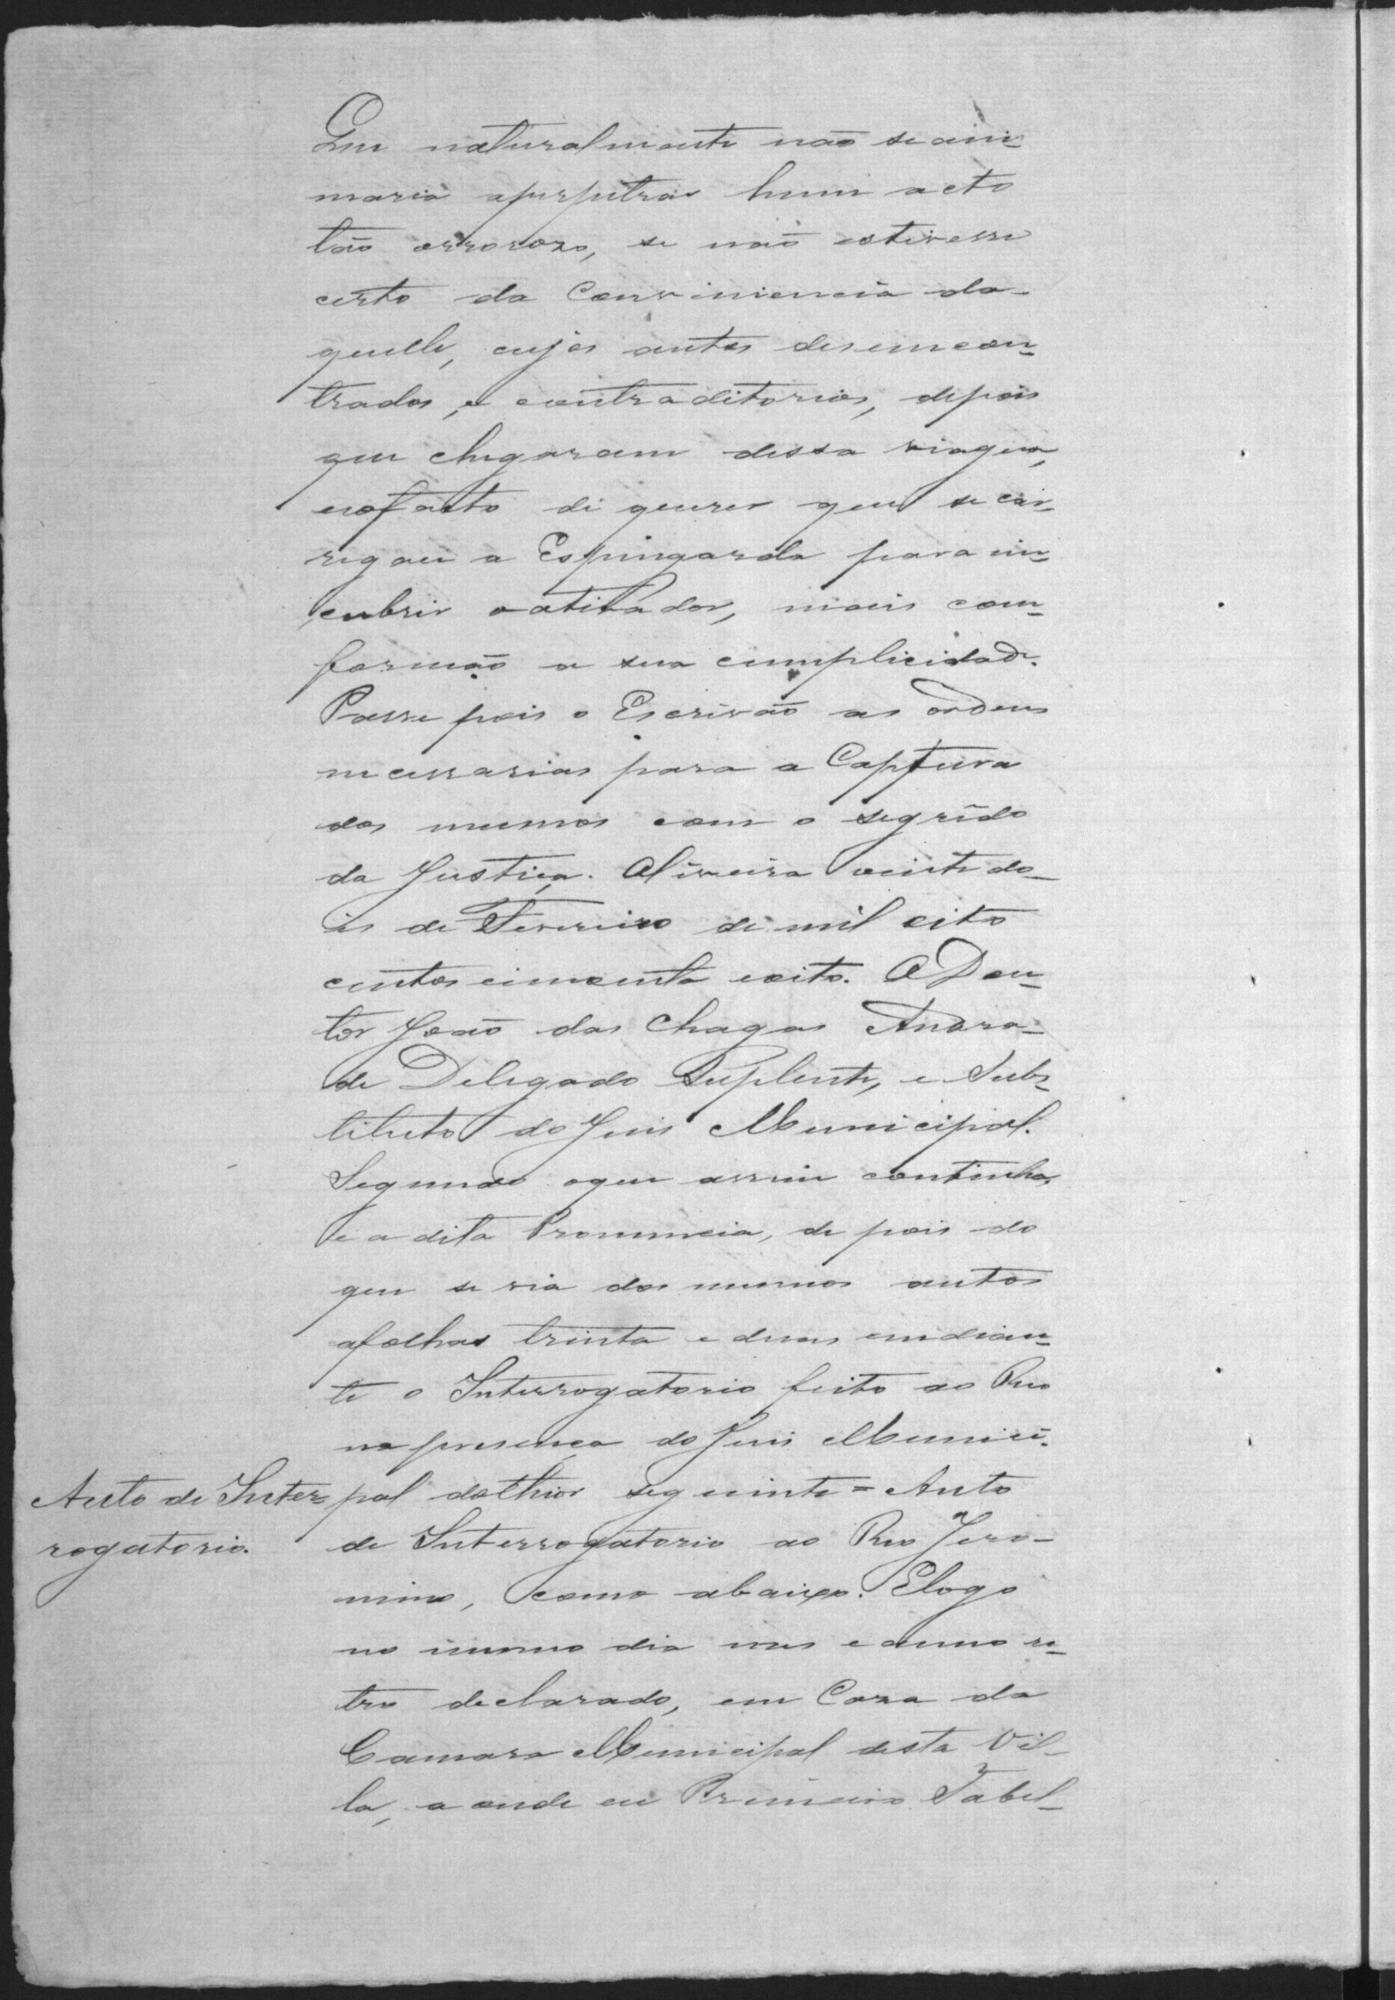 Que naturalmente não se ani-
maria aperpetrar hum acto
tão orrorozo, se não estivesse
certo da Conviniencia da-
quelle, cujos autos desencon-
trados, e contraditorios, depois
que chegaram dessa viagem,
eofacto di querer que se car-
regou a Espingarda para in-
cubrir o atirador, mais com-
formão a sua cumplicidade.
Passe pois o Escrivão as ordens
necessarias para a Captura
dos mesmos com o segrêdo
da Justiça. Oliveira vinte do-
is de Fevereiro de mil oito
centos cincoenta e oito. O Dou-
tor João das Chagas Andra-
de Delegado Suplente, e Subs-
tituto do Juis Municipal.
Segundo oque assim continha,
e a dita Pronuncia, de pois do
que se via dos mesmos autos
afolhas trinta e duas endian-
te o Interrogatorio feito ao Reo
na presença do Juis Munici-
Auto de Inter-
rogatorio.
pal dothior seguinte = Auto
de Interrogatorio ao Reo Jero-
nimo, como abaixo. Elogo
no mesmo dia mes e anno re-
tro declarado, em Caza da
Camara Municipal desta Vil-
la, a onde eu Primeiro Tabel-